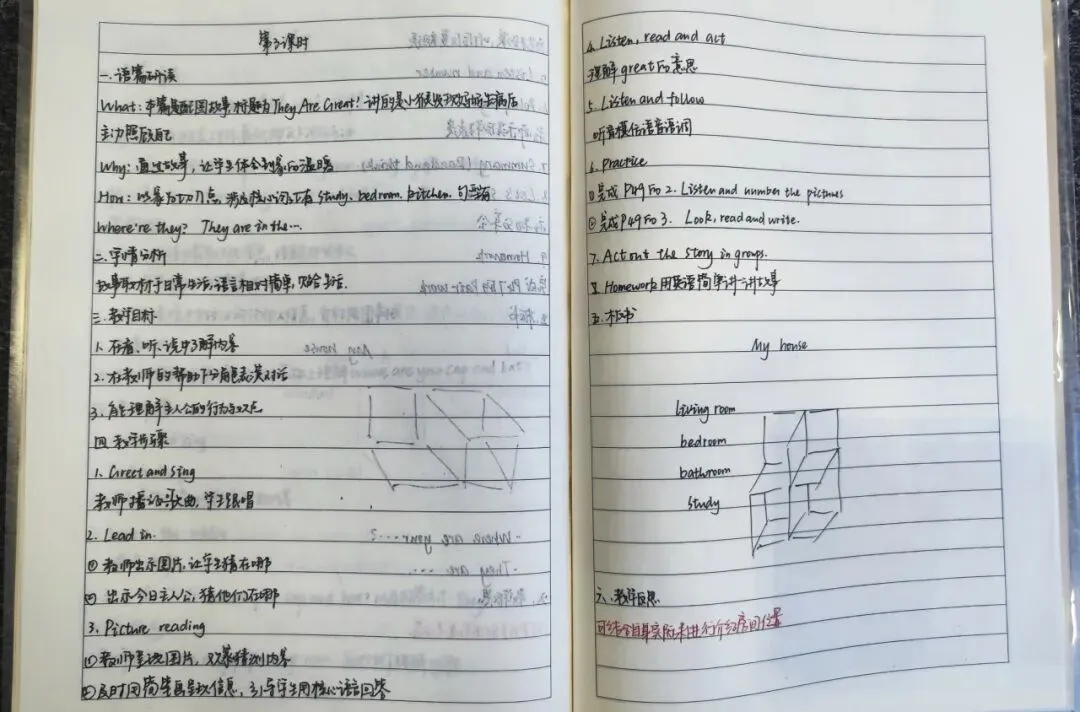 第3课时
一.语篇研读
What: 本篇是配图故事,标题为They Are Great! 讲的是小
主动照顾自己
Why: 通过故事,让学生体会到家的温暖
How: 以家为切入点,涉及核心词汇有study、bedroom、kitchen.句型有
Where're they? They are in the…
二.学情分析
故事取材于日常生活,语言相对简单,贴合生活.
三.教学目标
1.在看、听、说中了解内容
2.在教师的帮助下分角色表演对话
3.能理解主人公的行为与
四.教学步骤
1. Greet and sing
教师播放歌曲,学生跟唱
2. Lead in.
① 教师出示图片,让学生猜在哪
② 出示今日主人公,猜他们在哪
3. Picture reading
① 教师呈现图片,观察猜测内容
② 及时用简笔画呈现信息,引导学生用核心语言回答
4. Listen, read and act
理解great的意思
5. Listen and follow
听音模仿语音语调
6. Practice
① 完成P49的2. Listen and number the pictures
② 完成P49的3. Look, read and write.
7. Act out the story in groups.
8. Homework 用英语简单讲一讲故事
五.板书
My house
living room
bedroom
bathroom
study
六.教学反思
可结合自身实际来进行介绍房间位置